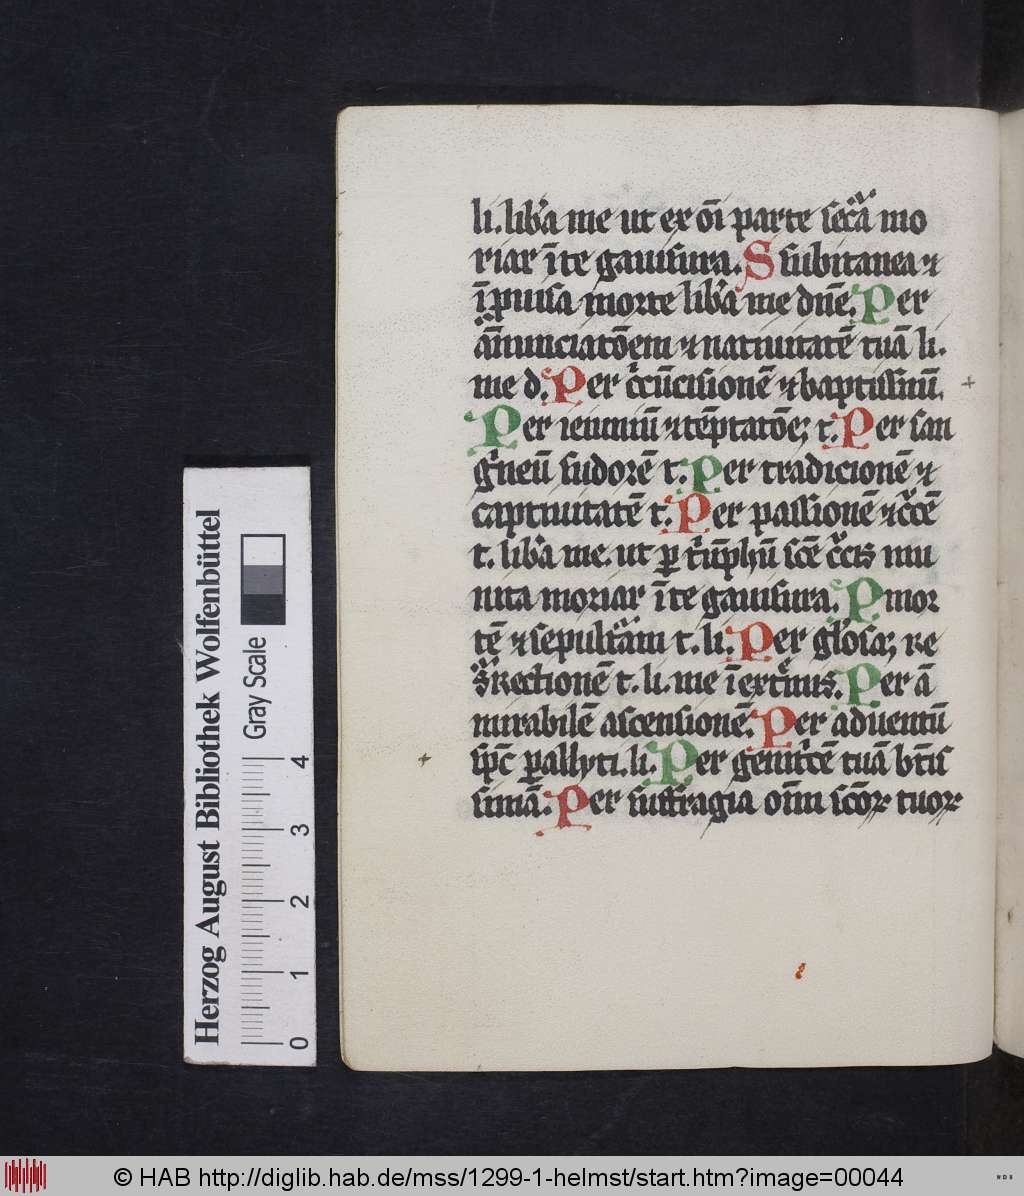 li. lib̾a me ut ex oı̄ parte sec̾a mo
riar ı̄ te gauisura. S subitanea ⁊
ı̄ꝓuisa morte lib̾a me dn̄e. Per
ānunciatōem ⁊ natiuitatē tuā li.
me d. Per cͥcūcisionē ⁊ baptissmū.
Per ieiuniū ⁊ tēptatōeꝫ t. Per san
gͥneū sudorē t. Per tradicionē ⁊
captiuitatē t. Per passionē ⁊ cͬcē
t. lib̾a me. ut ꝑ tͥūphū scē cͬcis mu
nita moriar ı̄ te gauisura. P mor
tē ⁊ sepultᵃam t. li. Per gl̾osaꝫ re
sᷓrectionē t. li. me ı̄ extͥmis. Per ā
mirabilē ascensionē. Per aduentū
sp̄c ꝑaclyti. li. Per genitͥcē tuā bt̄is
simā. Per suffragia oı̄m sc̄oꝝ tuoꝝ
Herzog August Bibliothek Wolfenbüttel
Gray Scale
0 1 2 3 4
© HAB http://diglib.hab.de/mss/1299-1-helmst/start.htm?image=00044